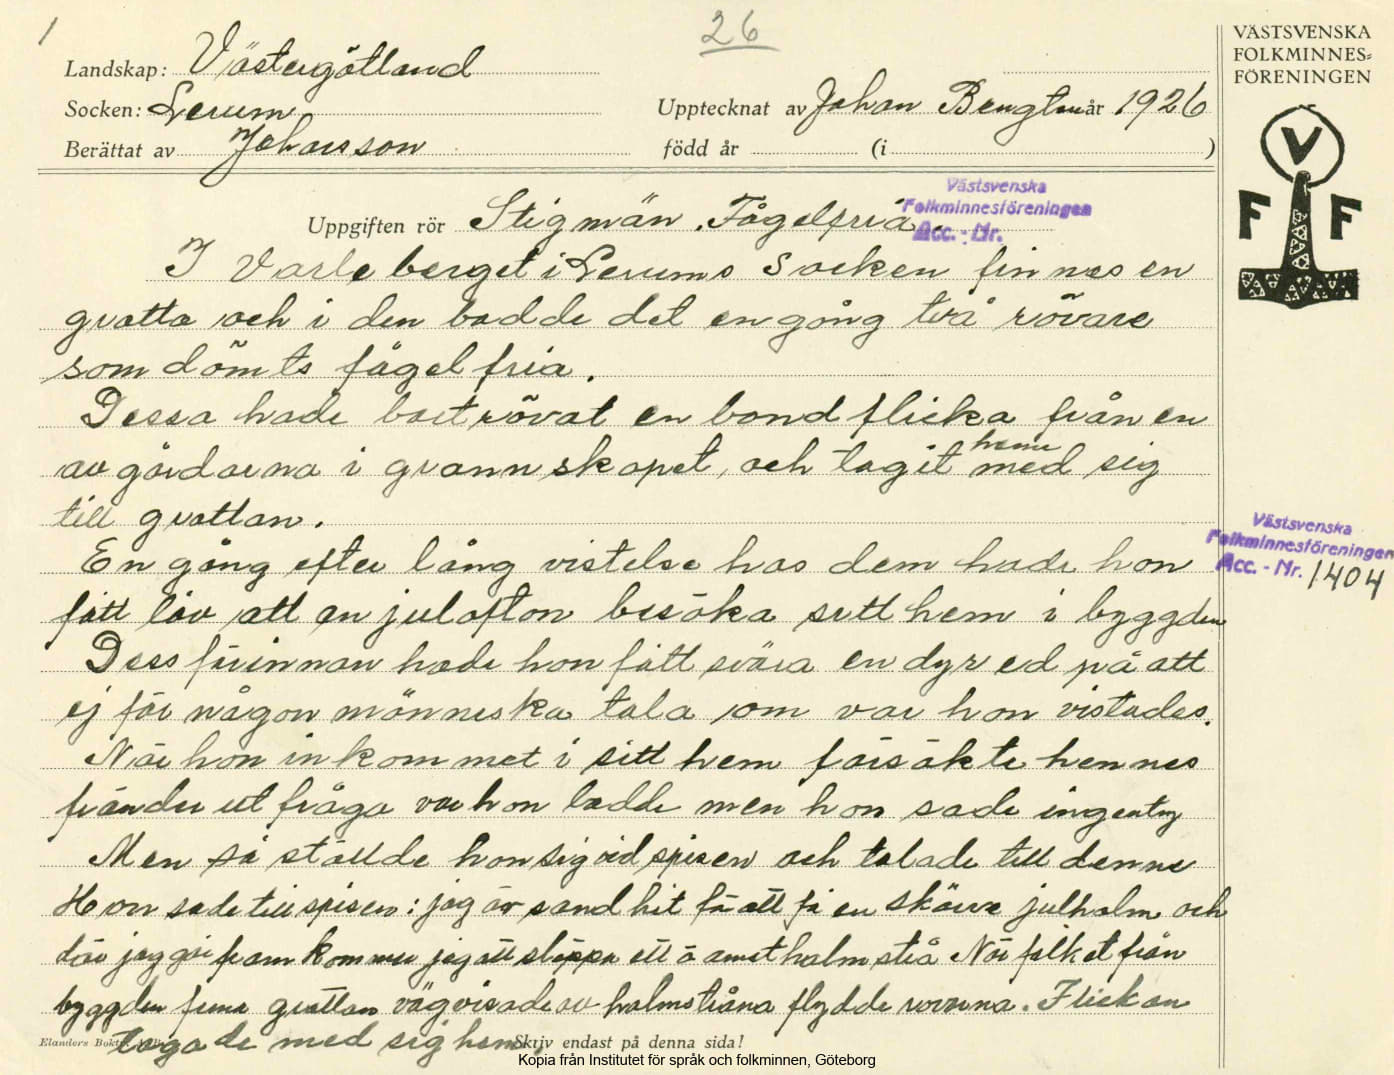 1
26
Landskap: Västergötland
Socken: Lerum
Upptecknat av Johan Bengtsson år 1926
Berättat av Johansson
född år (i )
VÄSTSVENSKA
FOLKMINNES-
FÖRENINGEN
V
F F
Uppgiften rör Stigmän. Fågelfria.
Västsvenska
Folkminnesföreningen
Acc. - Nr.
I Varleberget i Lerums socken finnes en
grotta och i den bodde det en gång två rövare
som dömts fågelfria.
Dessa hade bortrövat en bondflicka från en
av gårdarna i grannskapet, och tagit henne med sig
till grottan.
En gång efter lång vistelse hos dem hade hon
fått lov att en julafton besöka sitt hem i bygden
Dess förinnan hade hon fått svära en dyr ed på att
ej för någon människa tala om var hon vistades.
När hon inkommet i sitt hem försökte hennes
fränder utfråga var hon bodde men hon sade ingenting
Men så ställde hon sig vid spisen och talade till denne
Hon sade till spisen: jag är sand hit för att få en skärve julhalm och
där jag går fram kommer jag att släppa ett o annat halmstrå När folket från
byggden funne grottan vägvisade av halmstråna flydde rovarna. Flickan
togo de med sig hem.
Västsvenska
Folkminnesföreningen
Acc. - Nr. 1404
Elanders Boktr.
Skriv endast på denna sida!
Kopia från Institutet för språk och folkminnen, Göteborg